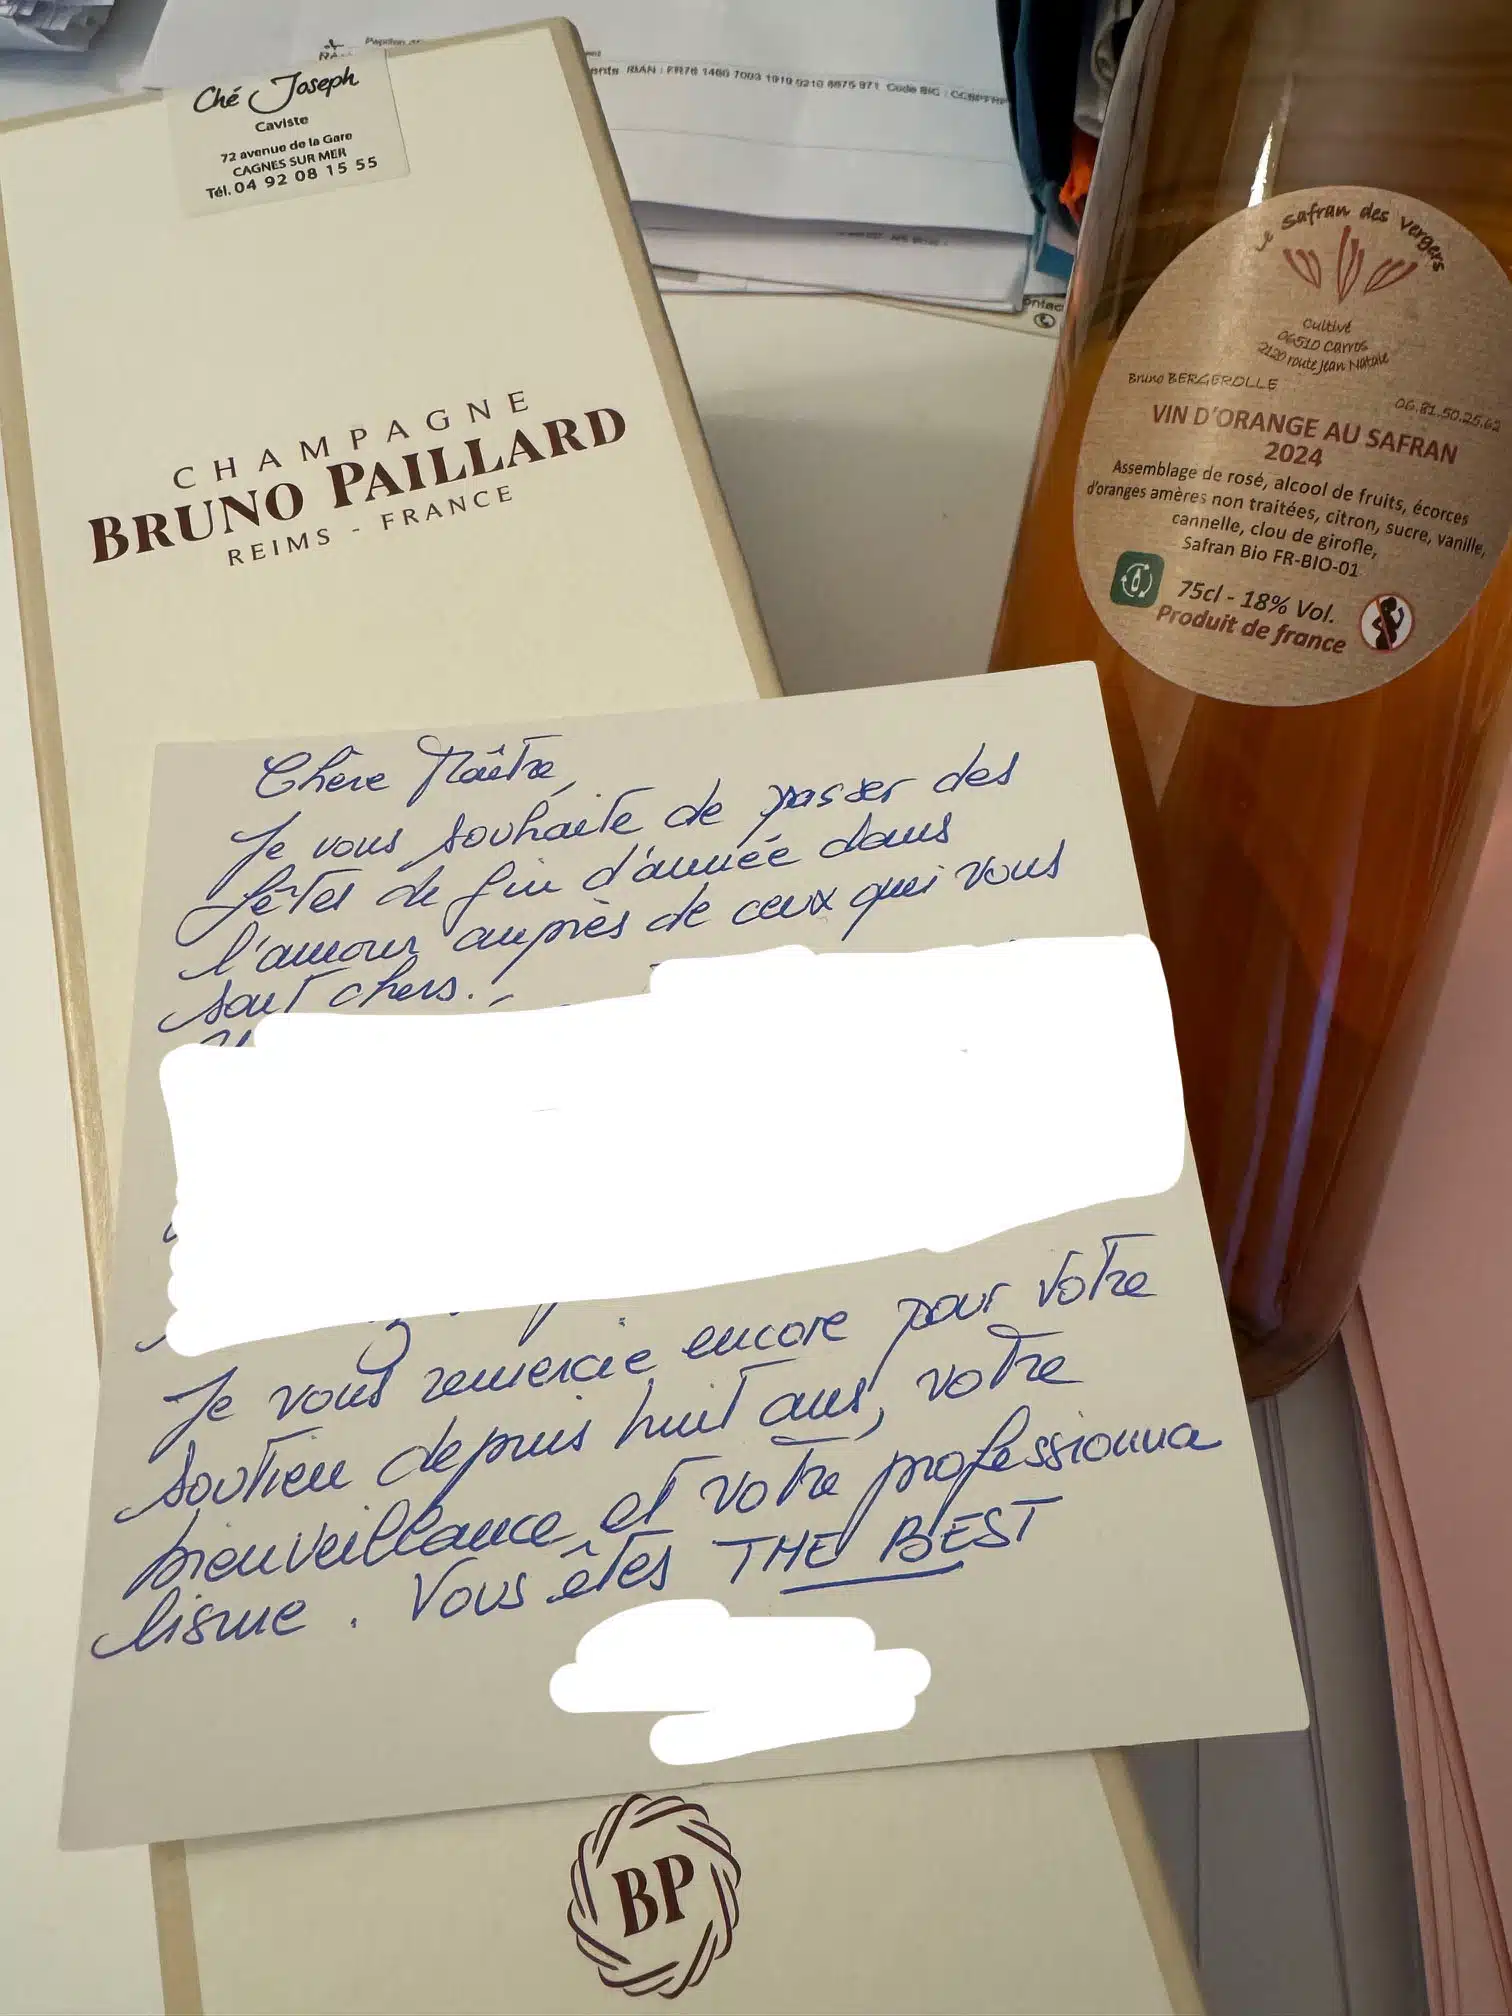 Ché Joseph
Caviste
72 avenue de la Gare
CAGNES SUR MER
Tél. 04 92 08 15 55
CHAMPAGNE
BRUNO PAILLARD
REIMS - FRANCE
Le Safran des vergers
Cultivé
06510 Carros
2120 route Jean Natale
Bruno BERGEROLLE
06.81.50.25.62
VIN D'ORANGE AU SAFRAN
2024
Assemblage de rosé, alcool de fruits, écorces
d'oranges amères non traitées, citron, sucre, vanille,
cannelle, clou de girofle,
Safran Bio FR-BIO-01
75cl - 18% Vol.
Produit de france
Chère Maître,
Je vous souhaite de passer des
fêtes de fin d'année dans
l'amour auprès de ceux qui vous
sont chers.
Je vous remercie encore pour votre
soutien depuis huit ans, votre
bienveillance et votre professionna
lisme. Vous êtes THE BEST
BP